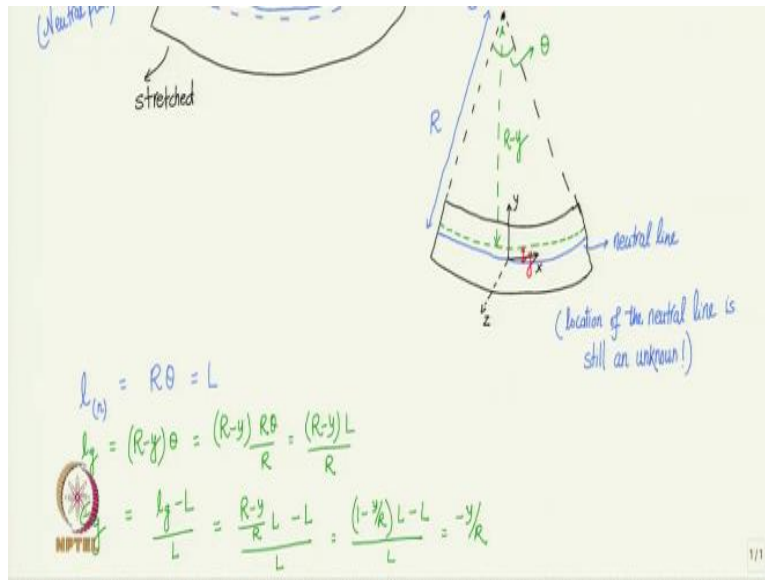 (Neutral
stretched
θ
R
R-y
y
y
x
z
neutral line
(location of the neutral line is
still an unknown!)
l(n) = Rθ = L
ly = (R-y)θ = (R-y) Rθ/R = (R-y) L/R
y = ly - L/L = R-y/R L - L/L = (1 - y/R) L - L/L = -y/R
NPTEL
1/1